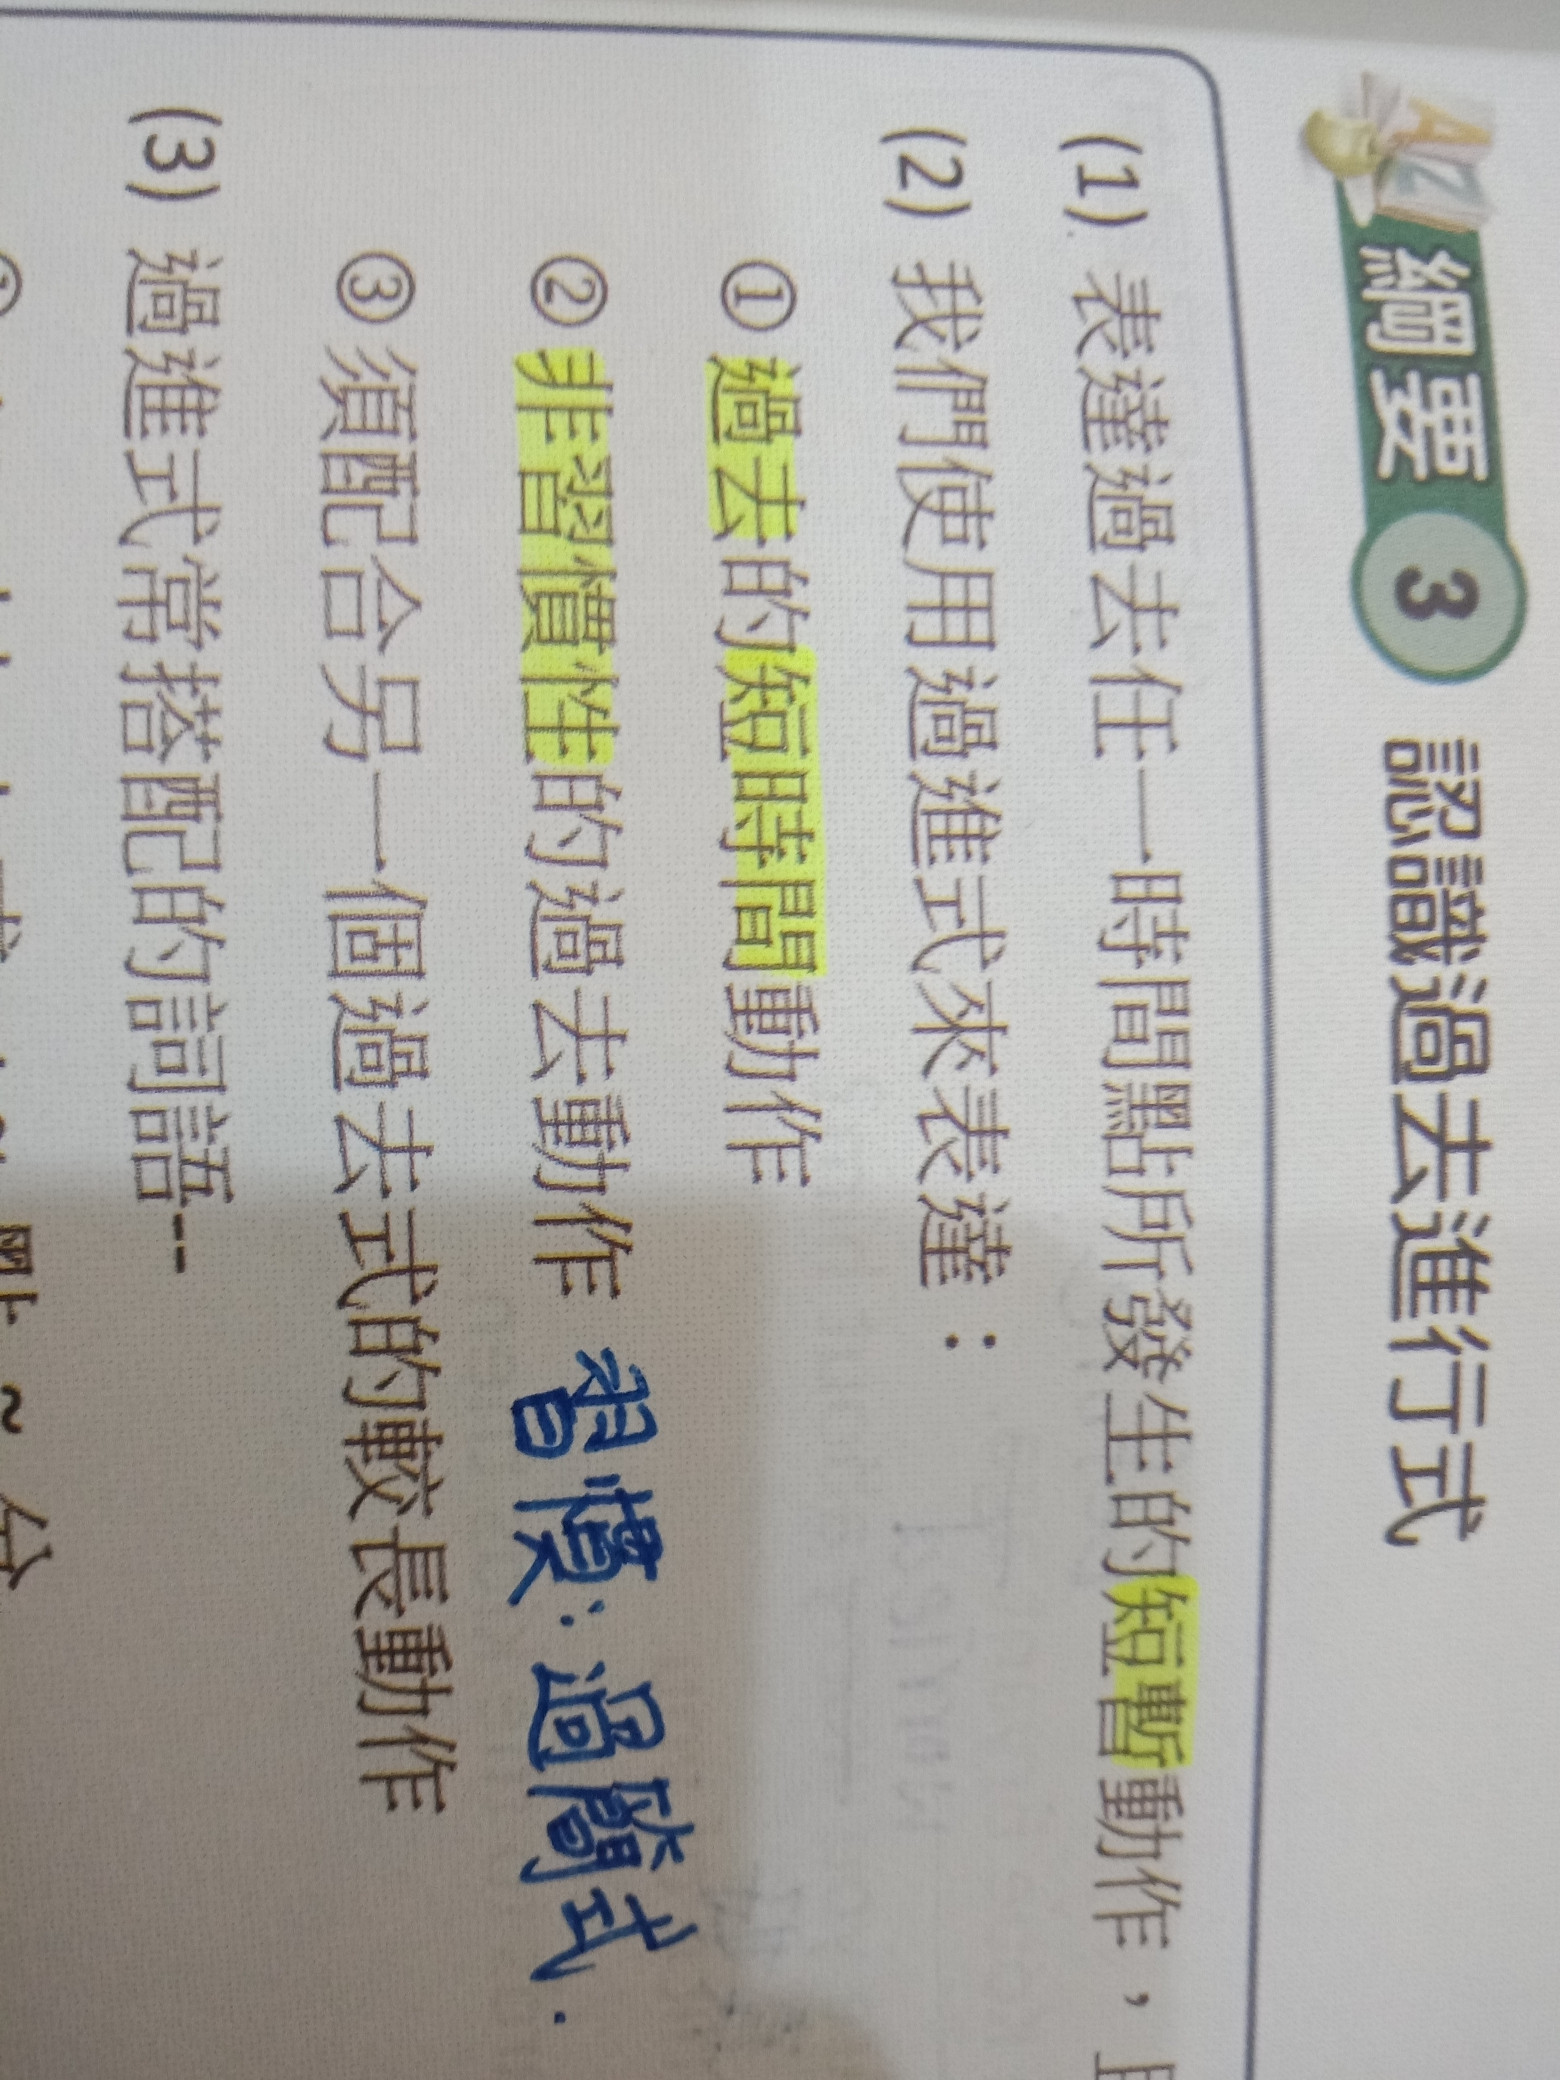 綱要 3 認識過去進行式
(1) 表達過去任一時間點所發生的短暫動作，
(2) 我們使用過進式來表達：
① 過去的短時間動作
② 非習慣性的過去動作 習慣：過簡式.
③ 須配合另一個過去式的較長動作
(3) 過進式常搭配的詞語--